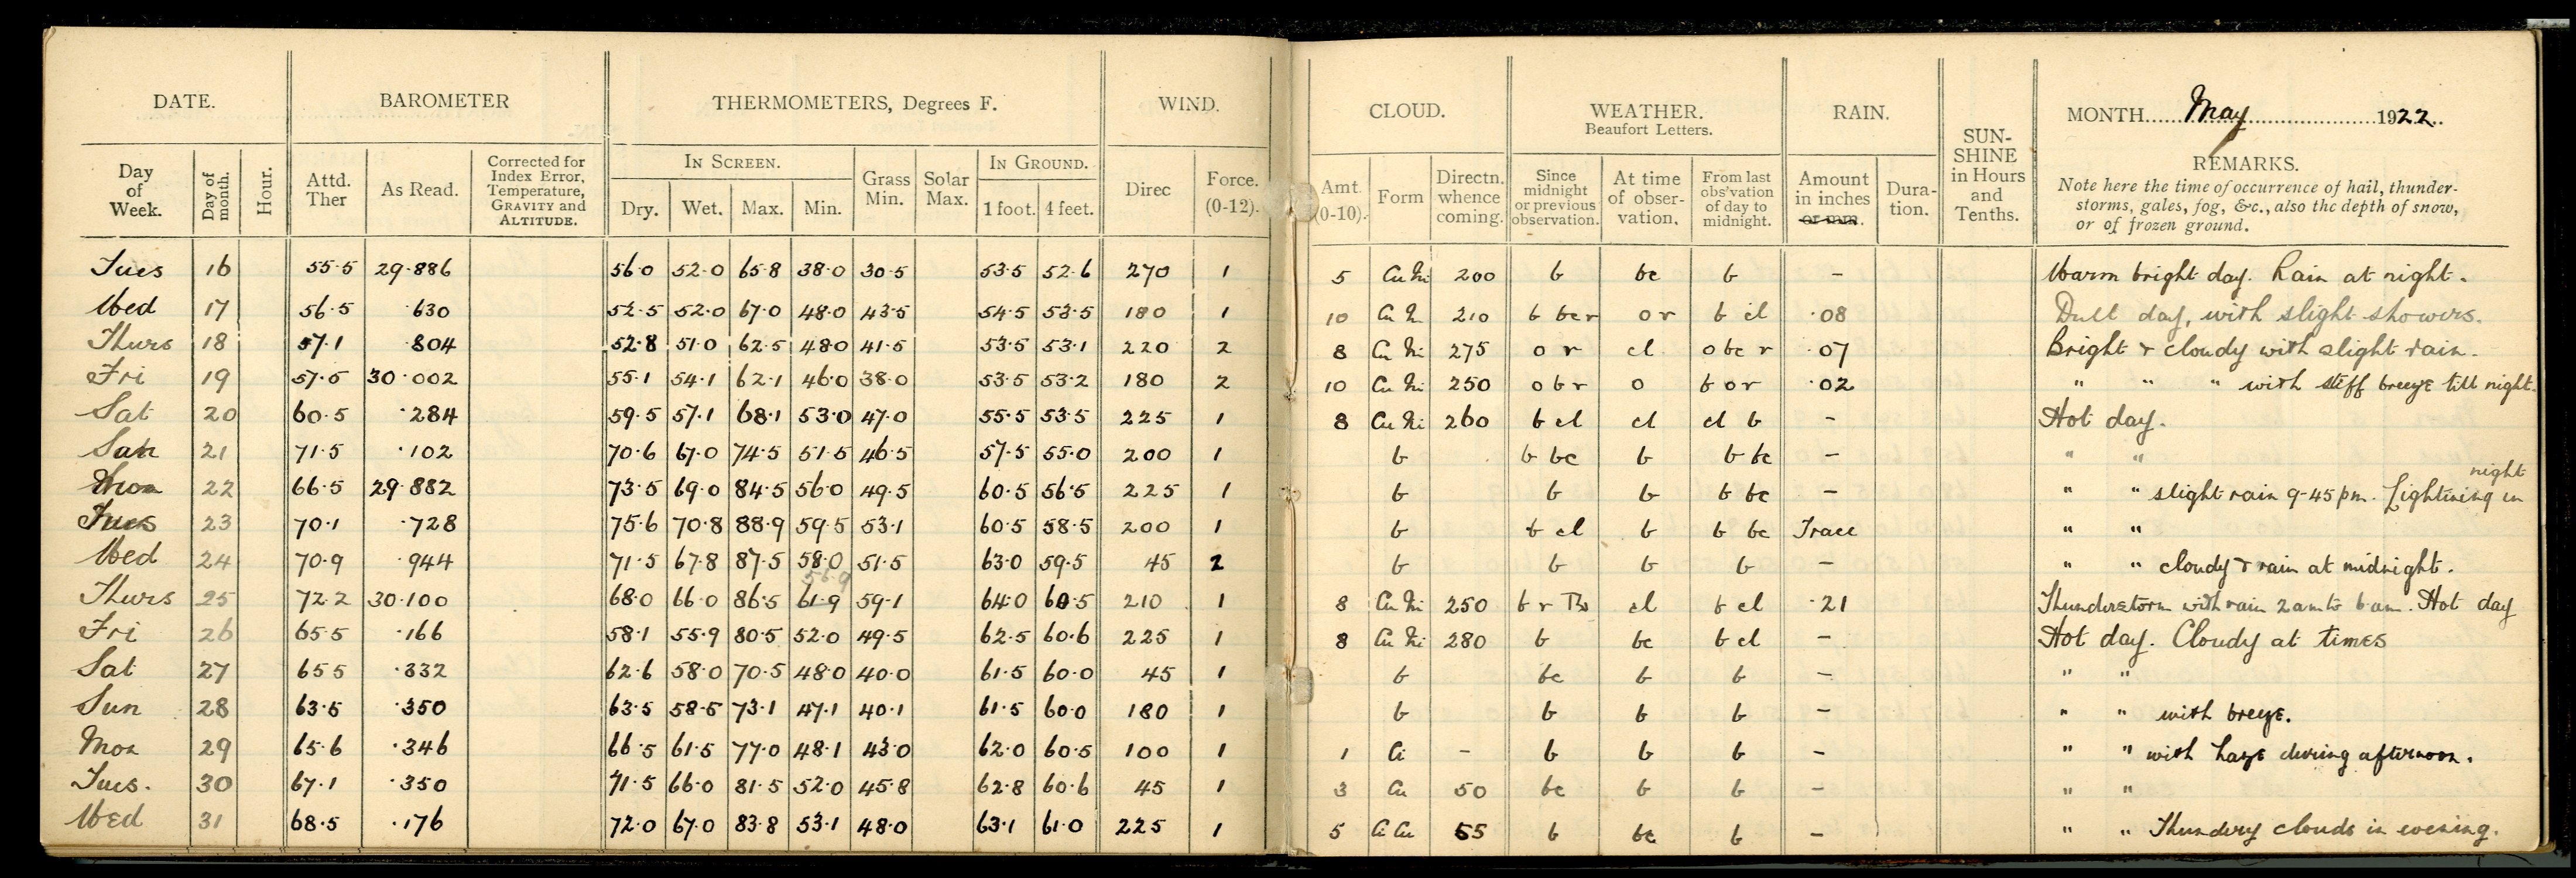 DATE. BAROMETER THERMOMETERS, Degrees F. WIND. CLOUD. WEATHER. Beaufort Letters. RAIN. SUN-SHINE in Hours and Tenths. MONTH May 1922.
Day of Week. Day of month. Hour. Attd. Ther As Read. Corrected for Index Error, Temperature, GRAVITY and ALTITUDE. IN SCREEN. Dry. Wet. Max. Min. Grass Min. Solar Max. IN GROUND. 1 foot. 4 feet. Direc Force. (0-12). Amt. (0-10). Form Directn. whence coming. Since midnight or previous observation. At time of obser-vation. From last obs'vation of day to midnight. Amount in inches or mm. Dura-tion. REMARKS.
Note here the time of occurrence of hail, thunder-
storms, gales, fog, &c., also the depth of snow,
or of frozen ground.
Tues 16 55.5 29.886 56.0 52.0 65.8 38.0 30.5 53.5 52.6 270 1 5 Cu Ni 200 b bc b – Warm bright day. Rain at night.
Wed 17 56.5 .630 52.5 52.0 67.0 48.0 43.5 54.5 53.5 180 1 10 Cu N. 210 b bcr or b cl .08 Dull day, with slight showers.
Thurs 18 57.1 .804 52.8 51.0 62.5 48.0 41.5 53.5 53.1 220 2 8 Cu Ni 275 o r cl obc r .07 Bright & cloudy with slight rain.
Fri 19 57.5 30.002 55.1 54.1 62.1 46.0 38.0 53.5 53.2 180 2 10 Cu Ni 250 obr o bor .02 " " " with stiff breeze till night.
Sat 20 60.5 .284 59.5 57.1 68.1 53.0 47.0 55.5 53.5 225 1 8 Cu Ni 260 b cl cl cl b – Hot day.
Sun 21 71.5 .102 70.6 67.0 74.5 51.5 46.5 57.5 55.0 200 1 b b bc b b bc – " "
Mon 22 66.5 29.882 73.5 69.0 84.5 56.0 49.5 60.5 56.5 225 1 b b b b bc – " " slight rain 9-45pm. Lightning in night
Tues 23 70.1 .728 75.6 70.8 88.9 59.5 53.1 60.5 58.5 200 1 b b cl b b bc Trace " "
Wed 24 70.9 .944 71.5 67.8 87.5 58.0 51.5 63.0 59.5 45 2 b b b b – " " cloudy & rain at midnight.
56.9
Thurs 25 72.2 30.100 68.0 66.0 86.5 61.9 59.1 64.0 60.5 210 1 8 Cu Ni 250 b r Th cl b cl .21 Thunderstorm with rain 2am to 6am. Hot day
Fri 26 65.5 .166 58.1 55.9 80.5 52.0 49.5 62.5 60.6 225 1 8 Cu Ni 280 b bc b cl – Hot day. Cloudy at times
Sat 27 65 5 .332 62.6 58.0 70.5 48.0 40.0 61.5 60.0 45 1 b bc b b – " "
Sun 28 63.5 .350 63.5 58.5 73.1 47.1 40.1 61.5 60.0 180 1 b b b b – " " with breeze.
Mon 29 65.6 .346 66.5 61.5 77.0 48.1 43.0 62.0 60.5 100 1 1 Ci – b b b – " " with haze during afternoon.
Tues. 30 67.1 .350 71.5 66.0 81.5 52.0 45.8 62.8 60.6 45 1 3 Cu 50 bc b b – " "
Wed 31 68.5 .176 72.0 67.0 83.8 53.1 48.0 63.1 61.0 225 1 5 Ci Cu 55 b bc b – " " Thundery clouds in evening.